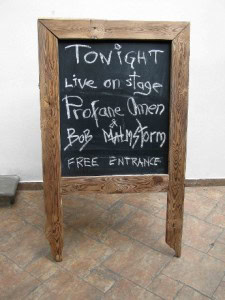 Tonight
Live on stage
Profane Omen
&
Bob Malmstorm
FREE ENTRANCE